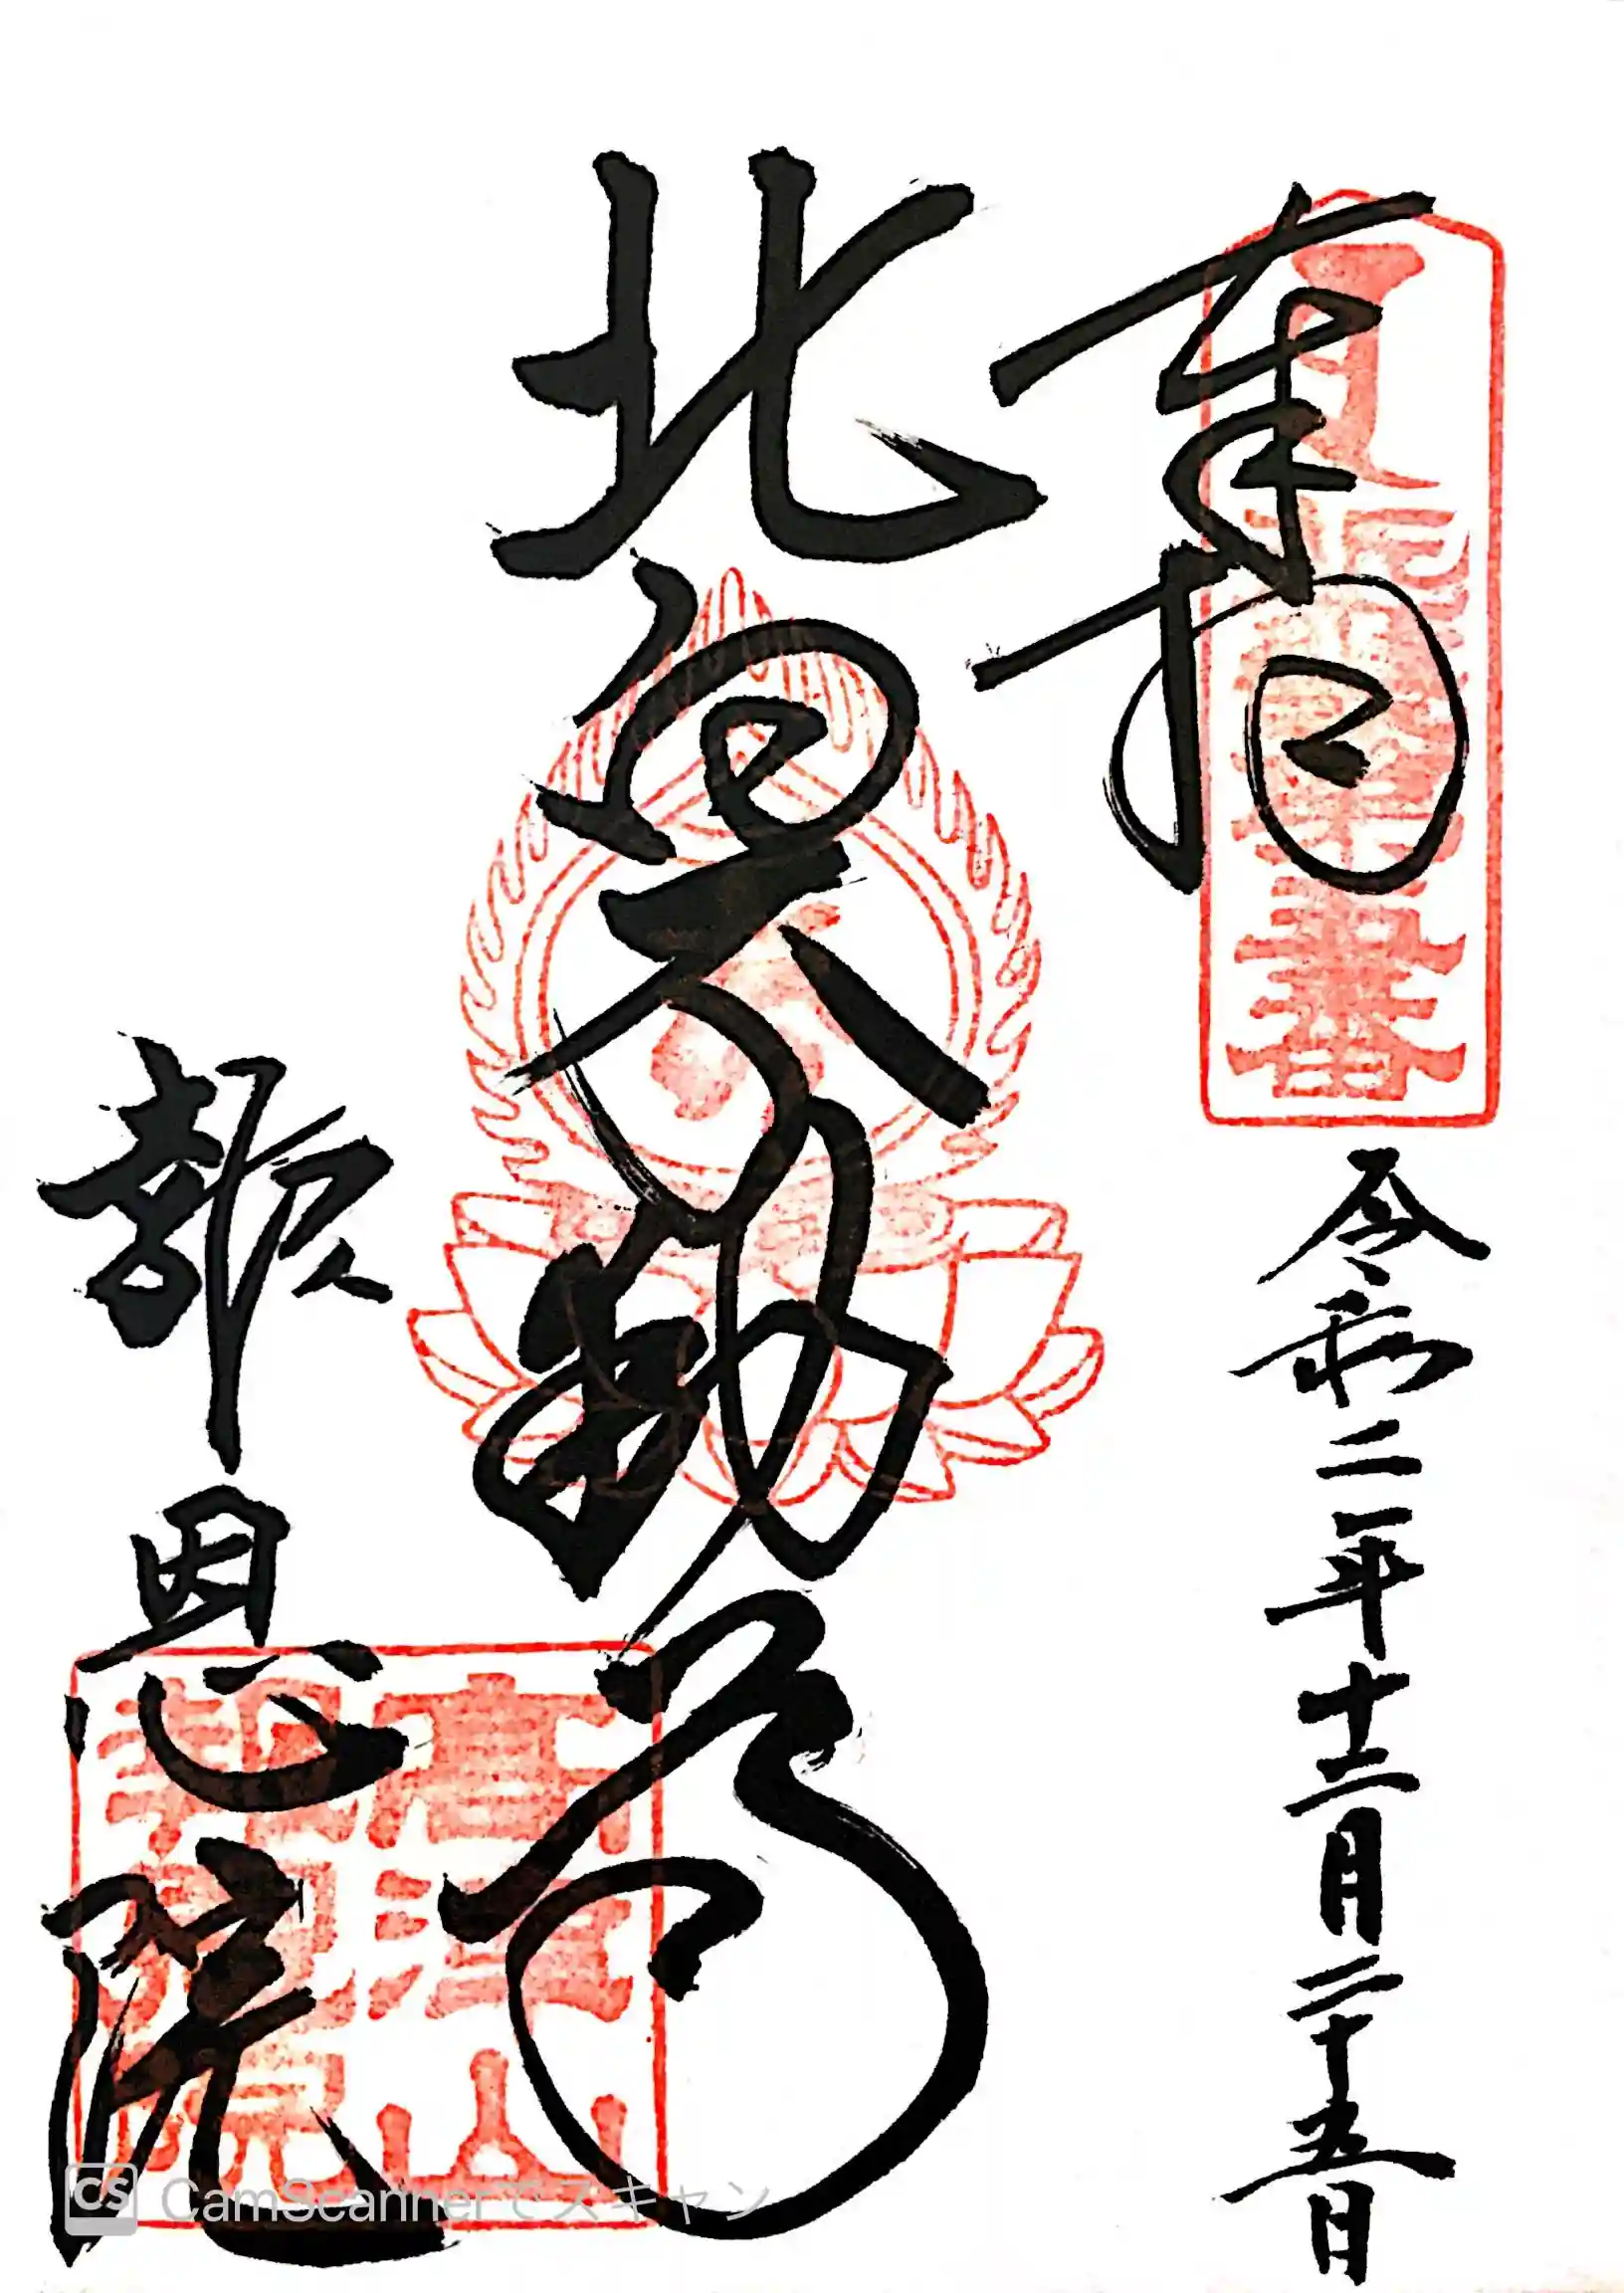 奉拝
令和二年十二月二十五日
北向不動尊
報恩院
高津山
報恩院
CS CamScannerでスキャン